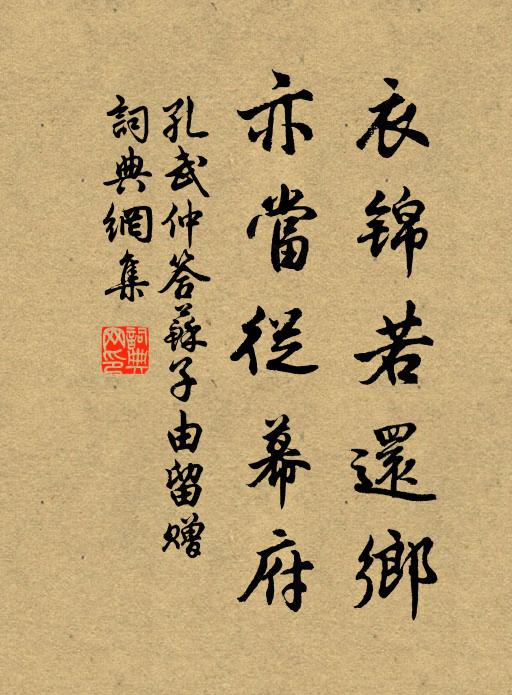 衣錦若還鄉
亦當從幕府
孔武仲答蘇子由留贈
詞典網集
詞典網印